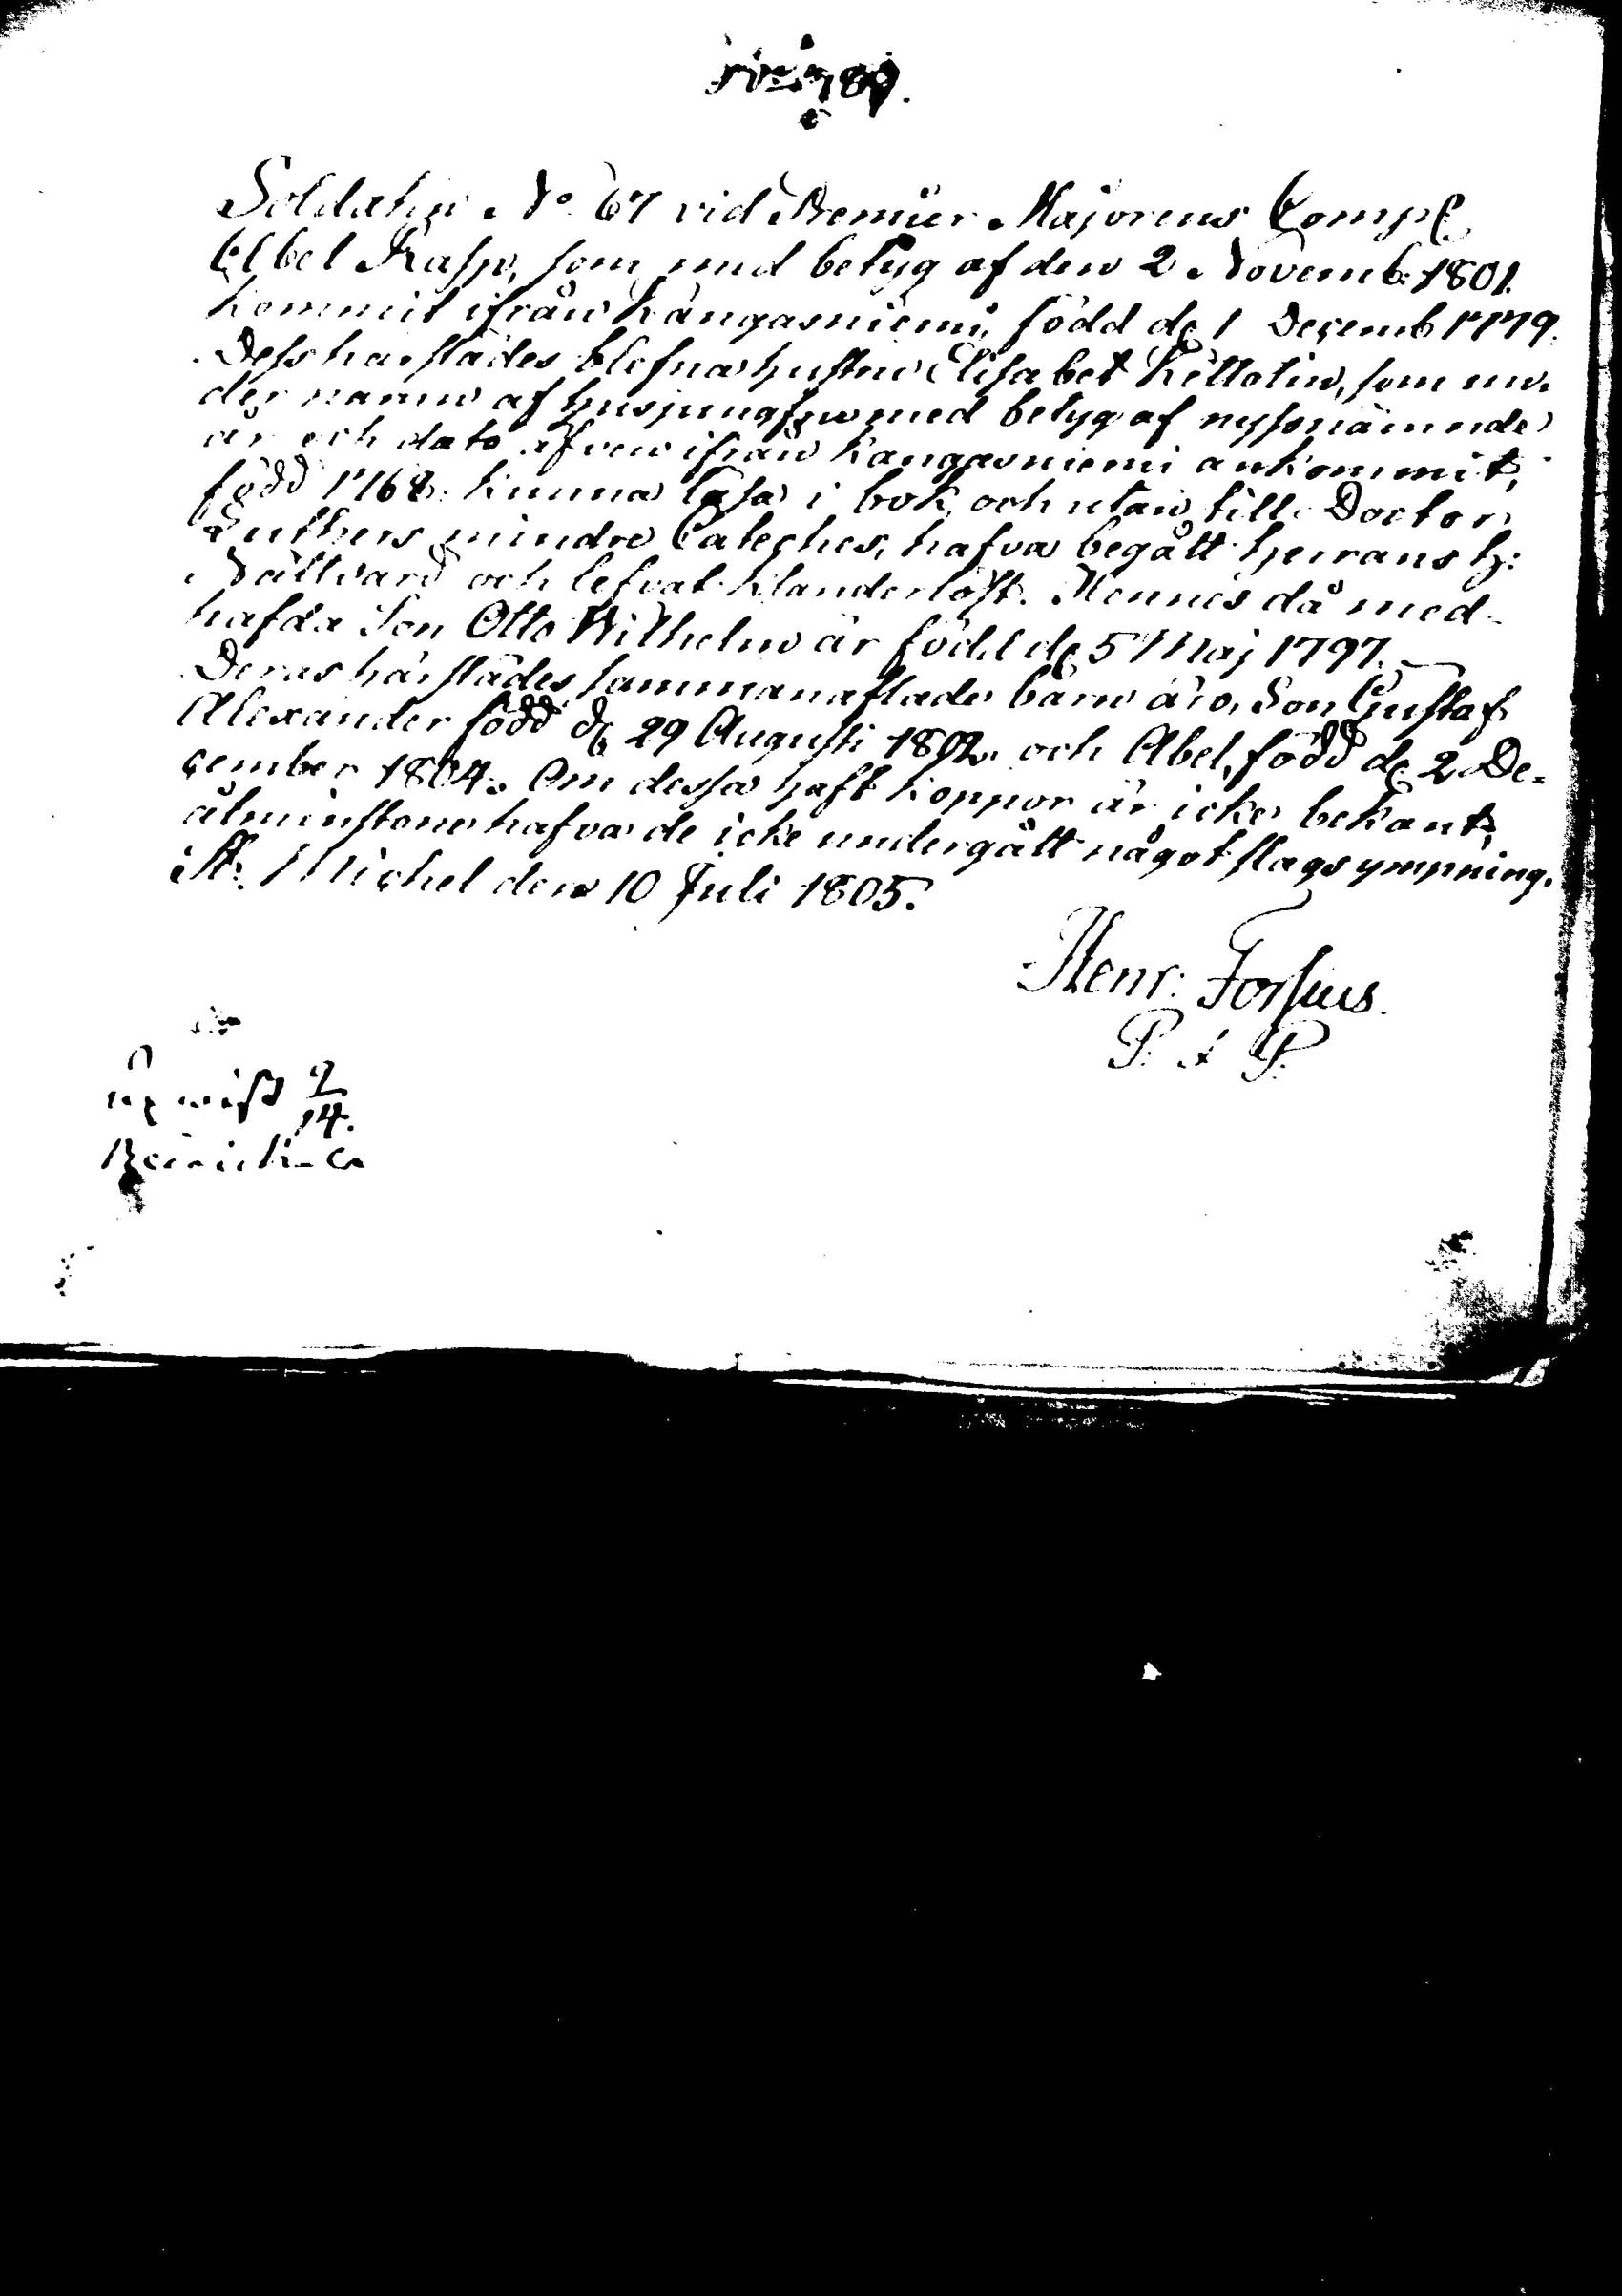 Soldaten No 67 vid Premier Majorens Comp:
Abel Rasp, som med betyg af den 2 Novemb: 1801.
kommit ifrån Kangasniemi, född d. 1 Decemb 1779.
Dess härstädes blefna hustru Elisabet Kettotin, som un-
der namn af husjungfru med betyg af nyssnämnde
år och dato äfven ifrån Kangasniemi ankommit,
född 1768. kunna läsa i bok, och utan till Doctor
Luthers mindre Cateches, hafva begått herrans h:
Nattvard och lefvat klanderlöst. Hennes då med-
hafda Son Otto Wilhelm är född d. 5 Maj 1797.
Deras härstädes sammanaflade barn äro, Son Gustaf
Alexander född d. 29 Augusti 1802. och Abel, född d. 2 De-
cember 1804. Om dessa haft koppor är icke bekant,
åtminstone hafva de icke undergått något slags ympning.
St. Michel den 10 Juli 1805.
Henr: Forsius.
P. & P.